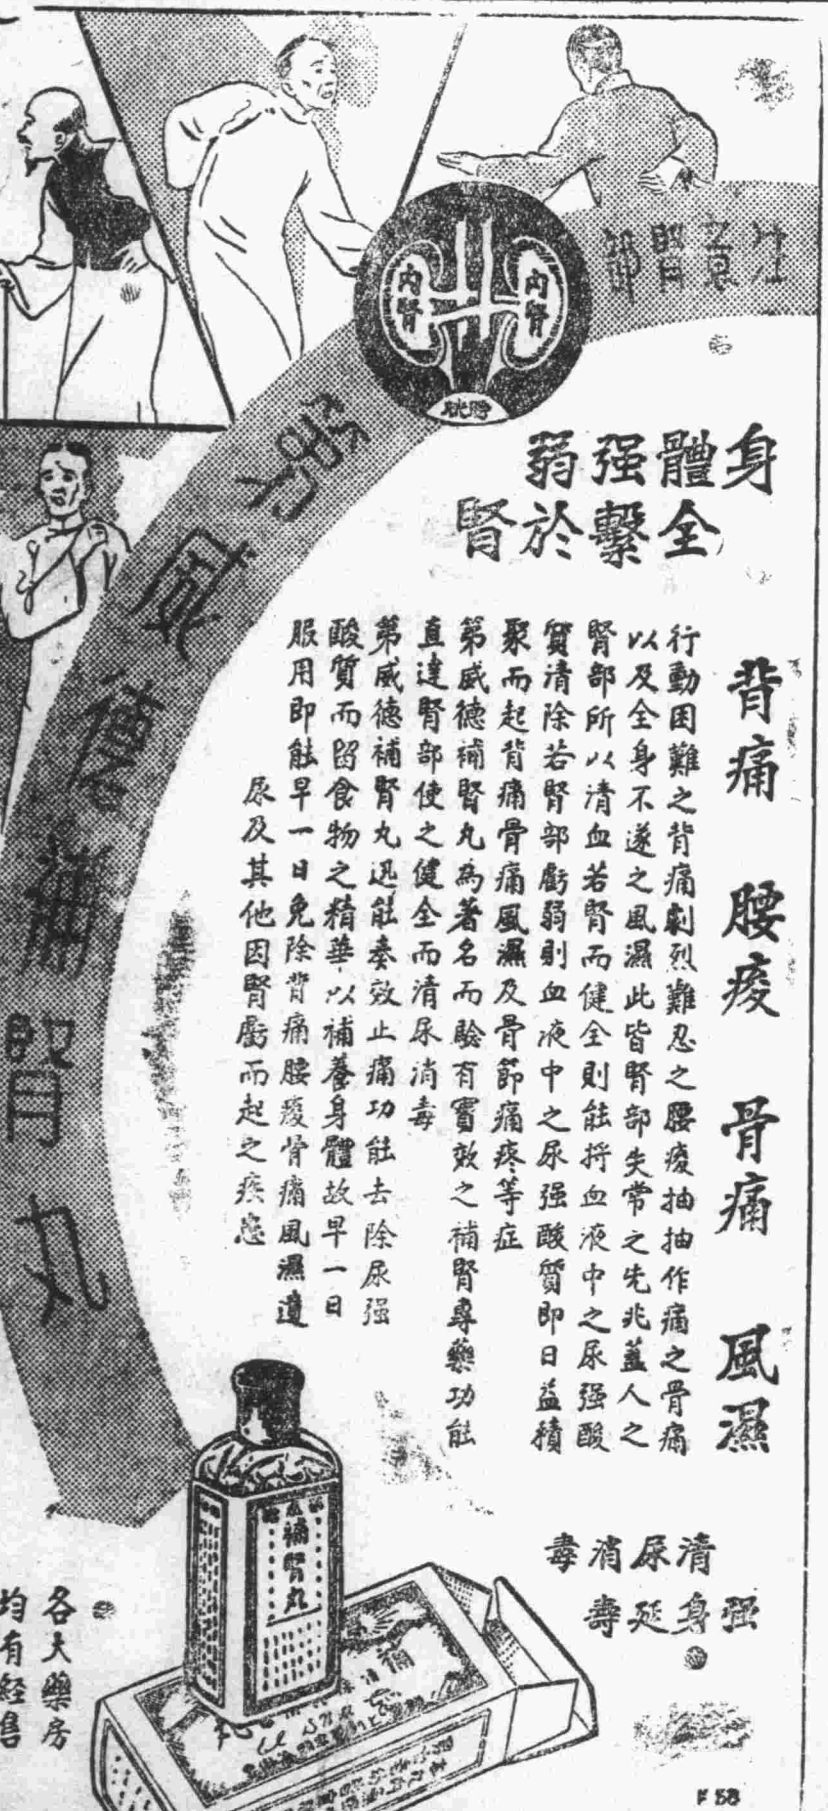 注意腎部
內腎
內腎
膀胱
第威德補腎丸
身體强弱
全繫於腎
背痛 腰痠 骨痛 風濕
行動困難之背痛劇烈難忍之腰痠抽抽作痛之骨痛
以及全身不遂之風濕此皆腎部失常之先兆蓋人之
腎部所以清血若腎而健全則能將血液中之尿强酸
質清除若腎部虧弱則血液中之尿强酸質即日益積
聚而起背痛骨痛風濕及骨節痛疼等症
第威德補腎丸為著名而驗有實效之補腎專藥功能
直達腎部使之健全而清尿消毒
第威德補腎丸迅能奏效止痛功能去除尿强
酸質而留食物之精華以補養身體故早一日
服用即能早一日免除背痛腰痠骨痛風濕遺
尿及其他因腎虧而起之疾患
清尿消毒
强身延壽
補腎丸
各大藥房
均有經售
F 58